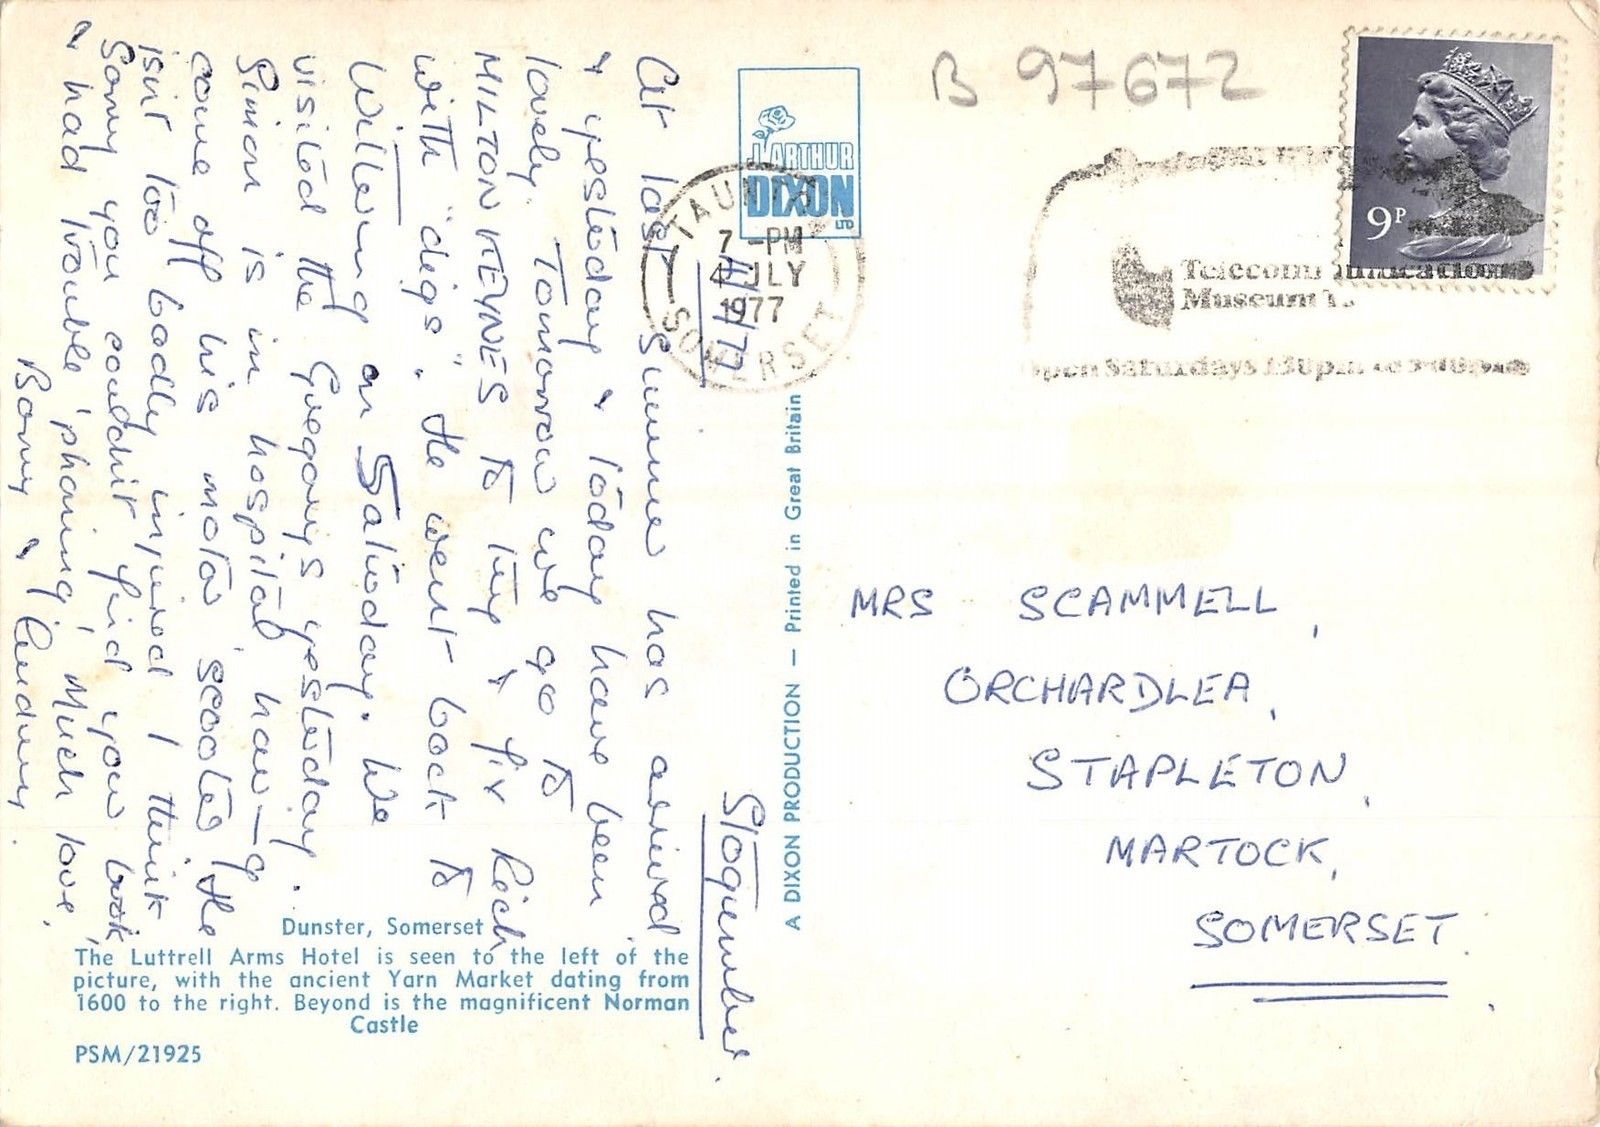 4/7/77
Stogumber.
At last Summer has arrived
& yesterday & today have been
lovely. Tomorrow we go to
MILTON KEYNES to try & fix Rich
with "digs". He went back to
Willerung on Saturday. We
visited the Gregorys yesterday.
Simon is in hospital, having
come off his motor scooter, He
isn't too badly injured I think
Sorry you couldn't find your book,
& had trouble 'phoning, Much love,
Barny & Lindsay.
B 97672
J. ARTHUR
DIXON
LTD
TAUNTON
7 -PM
4 JLY
1977
SOMERSET
9P
Telecommunications
Museum
Open Saturdays 1.30pm to 5.00pm
A DIXON PRODUCTION — Printed in Great Britain
MRS SCAMMELL,
ORCHARDLEA,
STAPLETON,
MARTOCK,
SOMERSET.
Dunster, Somerset
The Luttrell Arms Hotel is seen to the left of the
picture, with the ancient Yarn Market dating from
1600 to the right. Beyond is the magnificent Norman
Castle
PSM/21925